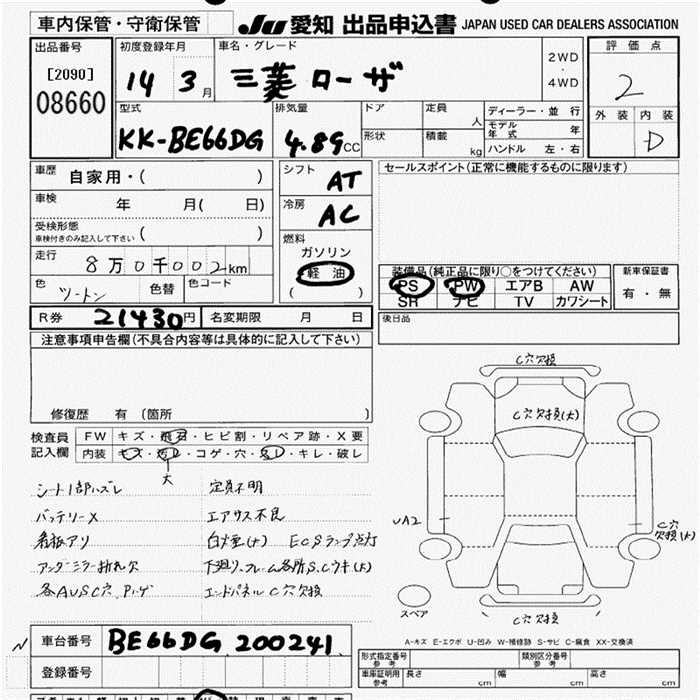 車内保管・守衛保管
JU 愛知 出品申込書 JAPAN USED CAR DEALERS ASSOCIATION
出品番号
[2090]
08660
初度登録年月
14 3月
車名・グレード
三菱 ローザ
2WD
・
4WD
評価点
2
外装 内装
D
型式
KK-BE66DG
排気量
4.89CC
ドア
形状
定員
人
積載
kg
ディーラー・並行
モデル年式 年
ハンドル 左・右
車歴 自家用・( )
車検 年 月( 日)
受検形態
車検付きのみ記入して下さい ( )
走行 8万0千002km
色 ツートン 色替 色コード
シフト
AT
冷房
AC
燃料
ガソリン
軽油
( )
セールスポイント(正常に機能するものに限ります)
装備品(純正品に限り○をつけてください)
PS PW エアB AW
SH ナビ TV カワシート
新車保証書
有・無
R券 21430円 名変期限 月 日
後日品
注意事項申告欄(不具合内容等は具体的に記入して下さい)
修復歴 有 〔箇所 〕
検査員
記入欄
FW キズ・飛石・ヒビ割・リペア跡・X要
内装 キズ・汚レ・コゲ・穴・スレ・キレ・破レ
大
シート1部ハズレ 定員不明
バッテリーX エアサス不良
看板アリ 白ケ亜(大) ECSランプ点灯
アンダーミラー折れ欠 下廻り、フレーム各所S、Cウキ(大)
各AUSC穴、P、ハゲ エンドパネルC穴欠損
C穴欠損
C穴欠損(大)
UA2
C穴欠損(大)
スペア
C穴欠損(大)
A-キズ E-エクボ U-凹み W-補修跡 S-サビ C-腐食 XX-交換済
車台番号 BE66DG 200241
登録番号
形式指定番号
参考
類別区分番号
参考
車庫証明用
参考
長さ cm 幅 cm 高さ cm